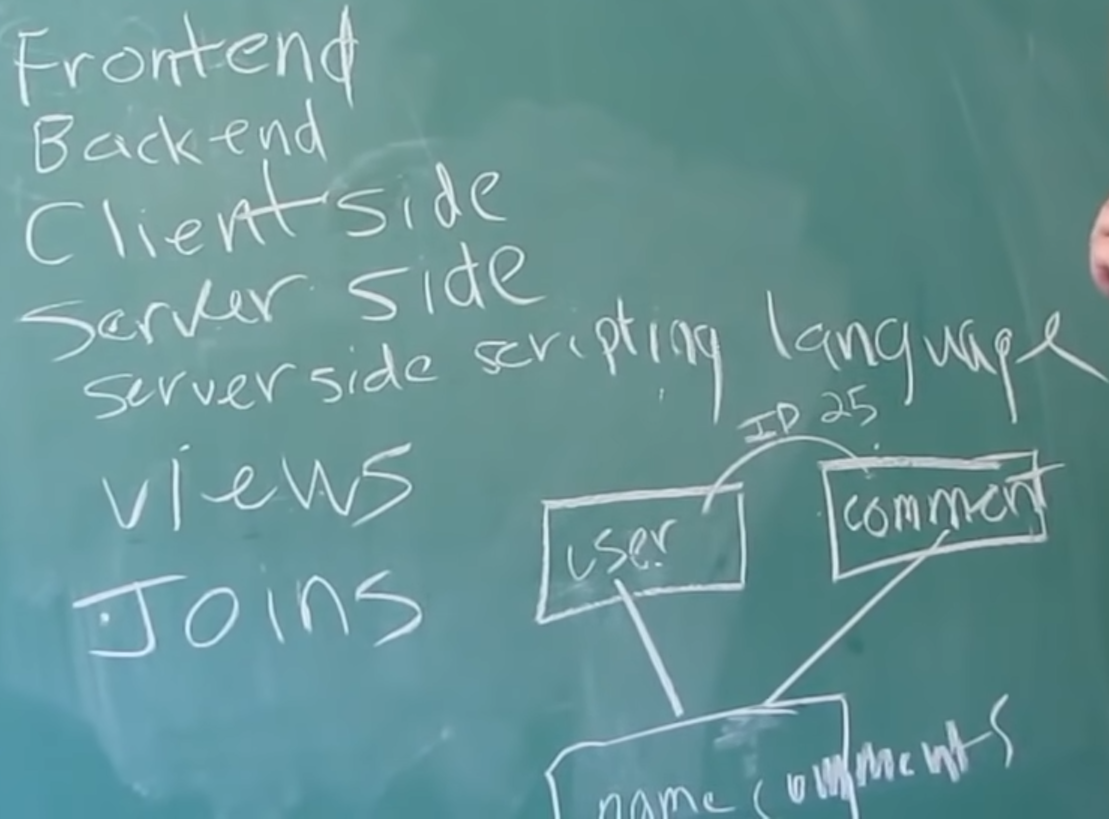 Frontend
Backend
Client side
Server side
server side scripting language
views
Joins
ID 25
user
comment
name comments